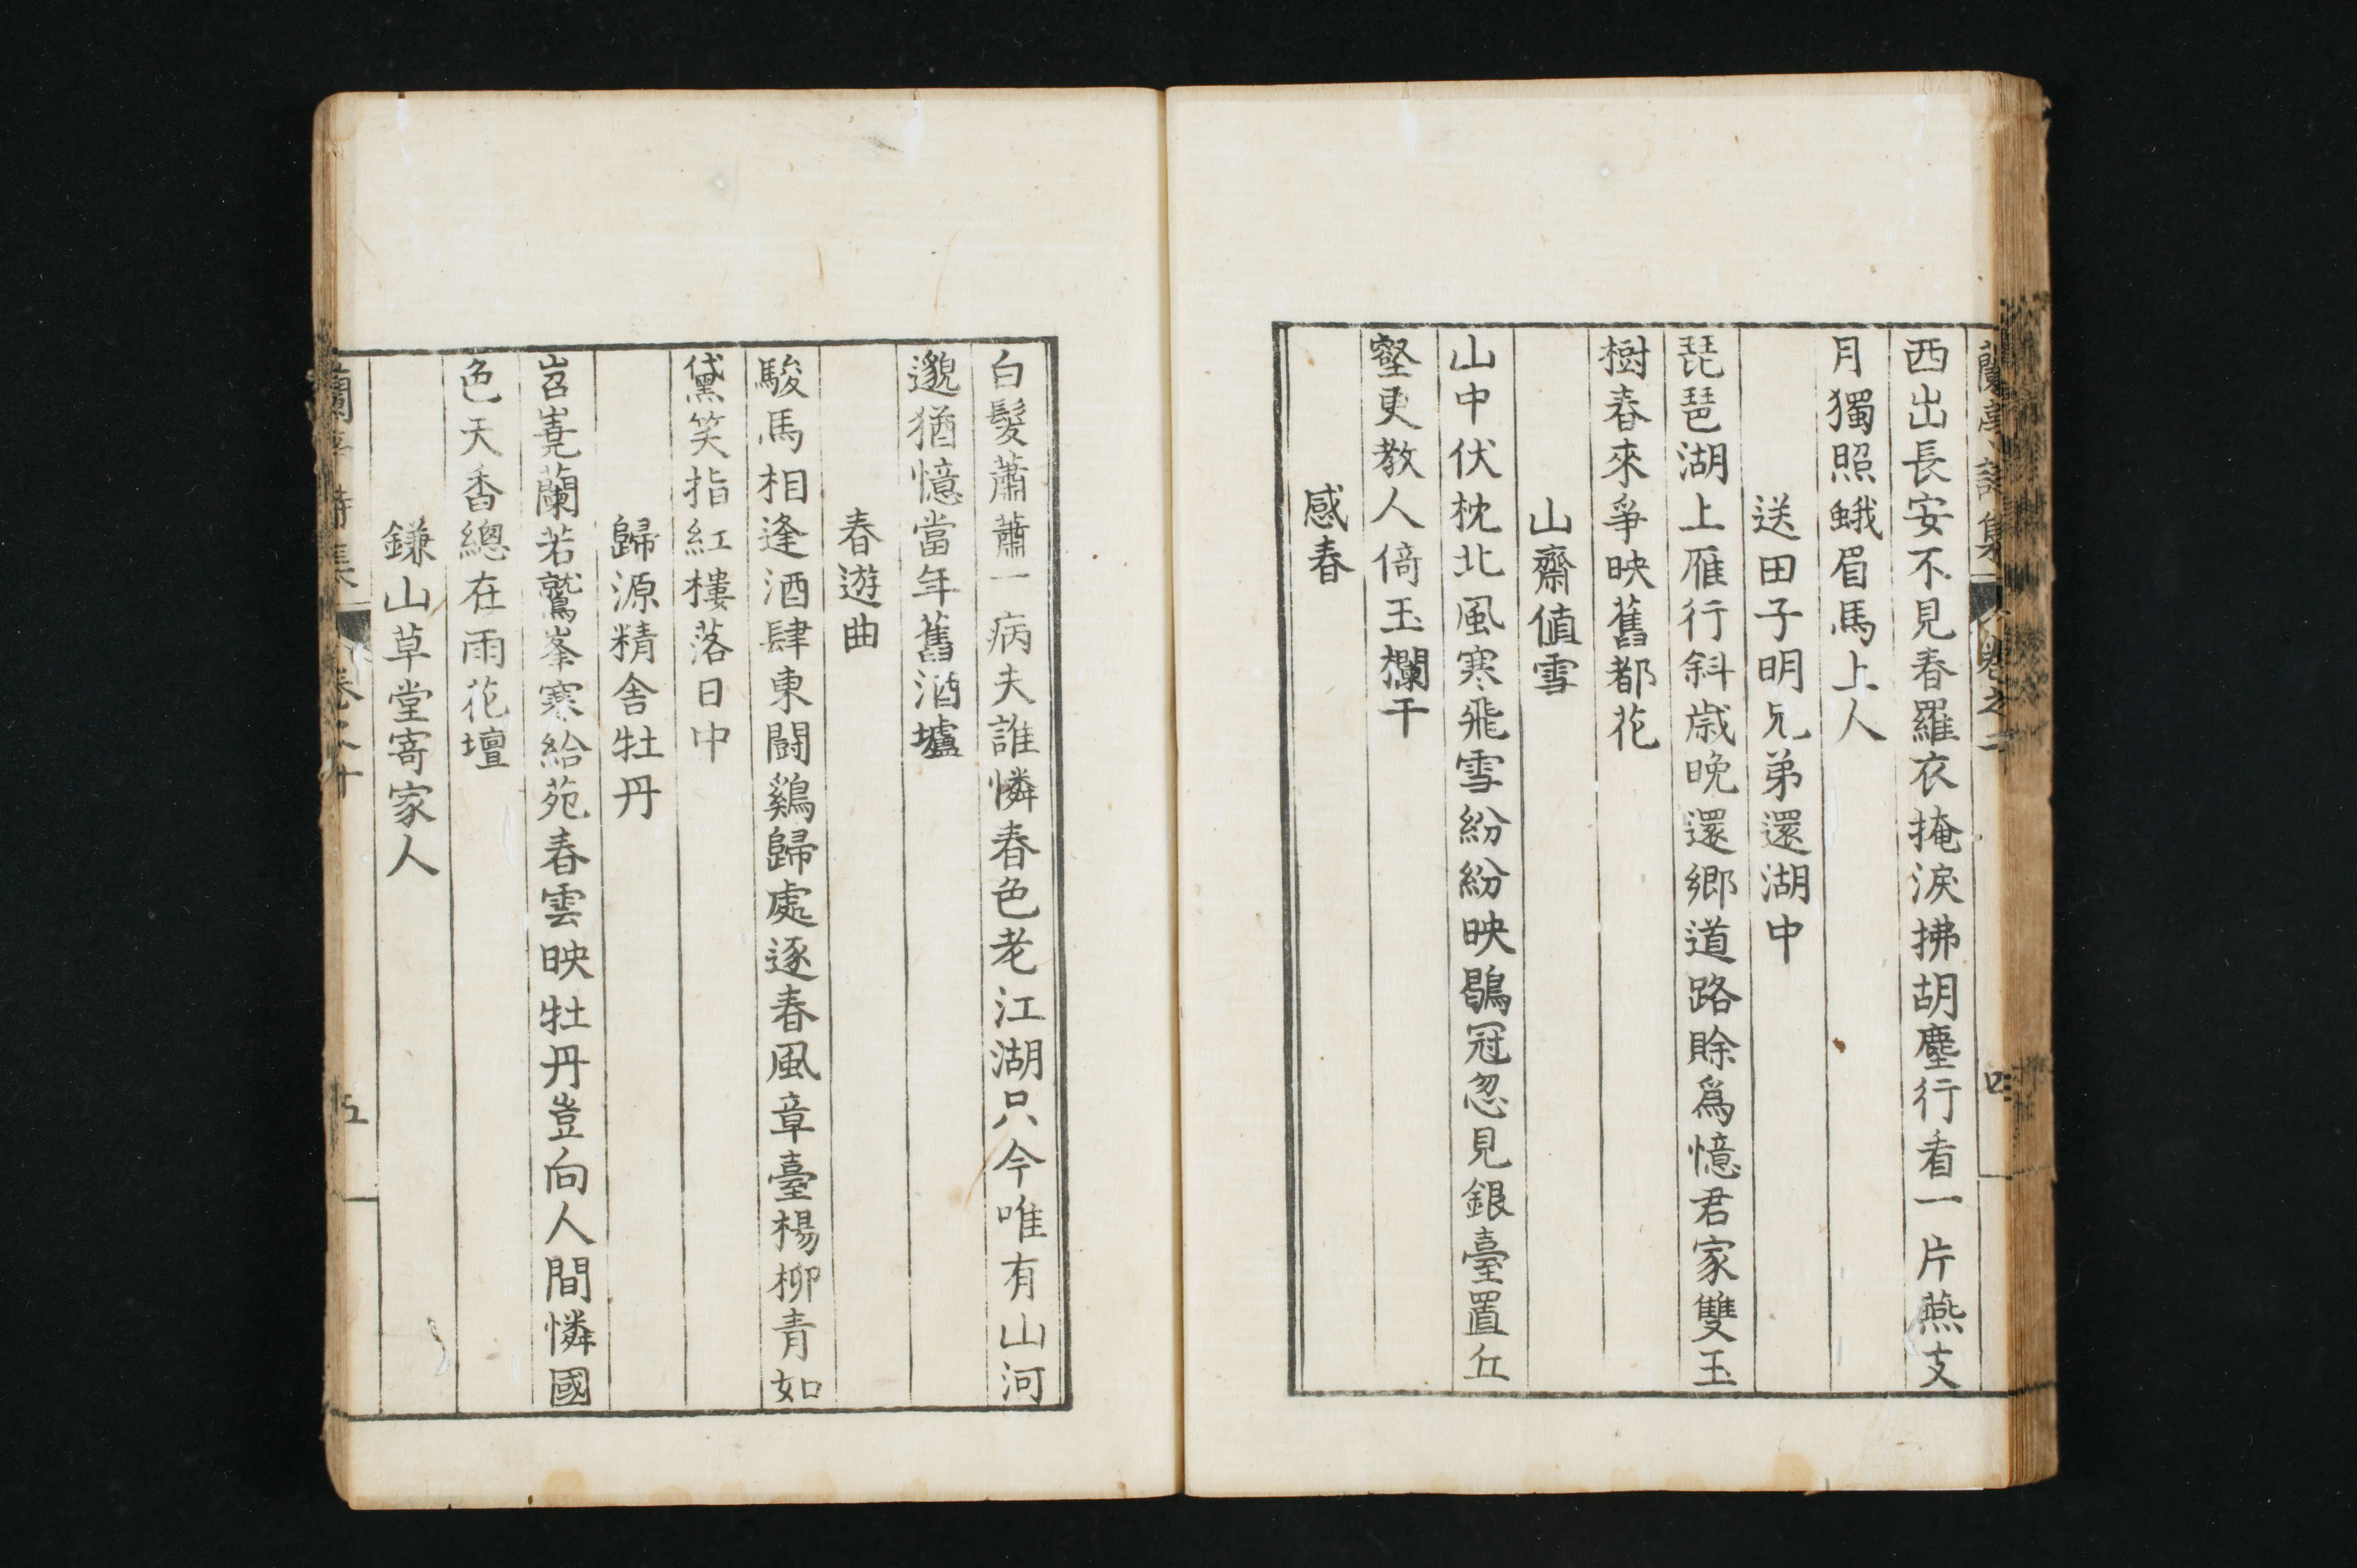 蘭亭詩集 卷之二 四
西出長安不見春羅衣掩淚拂胡塵行看一片燕支
月獨照蛾眉馬上人
送田子明兄弟還湖中
琵琶湖上雁行斜歲晚還鄉道路賒爲憶君家雙玉
樹春來爭映舊都花
山齋値雪
山中伏枕北風寒飛雪紛紛映鶡冠忽見銀臺置丘
壑更教人倚玉欄干
感春
白髮蕭蕭一病夫誰憐春色老江湖只今唯有山河
邈猶憶當年舊酒壚
春遊曲
駿馬相逢酒肆東鬪鷄歸處逐春風章臺楊柳青如
黛笑指紅樓落日中
歸源精舍牡丹
岧嶤蘭若鷲峯寒給苑春雲映牡丹豈向人間憐國
色天香總在雨花壇
鎌山草堂寄家人
蘭亭詩集 卷之 五